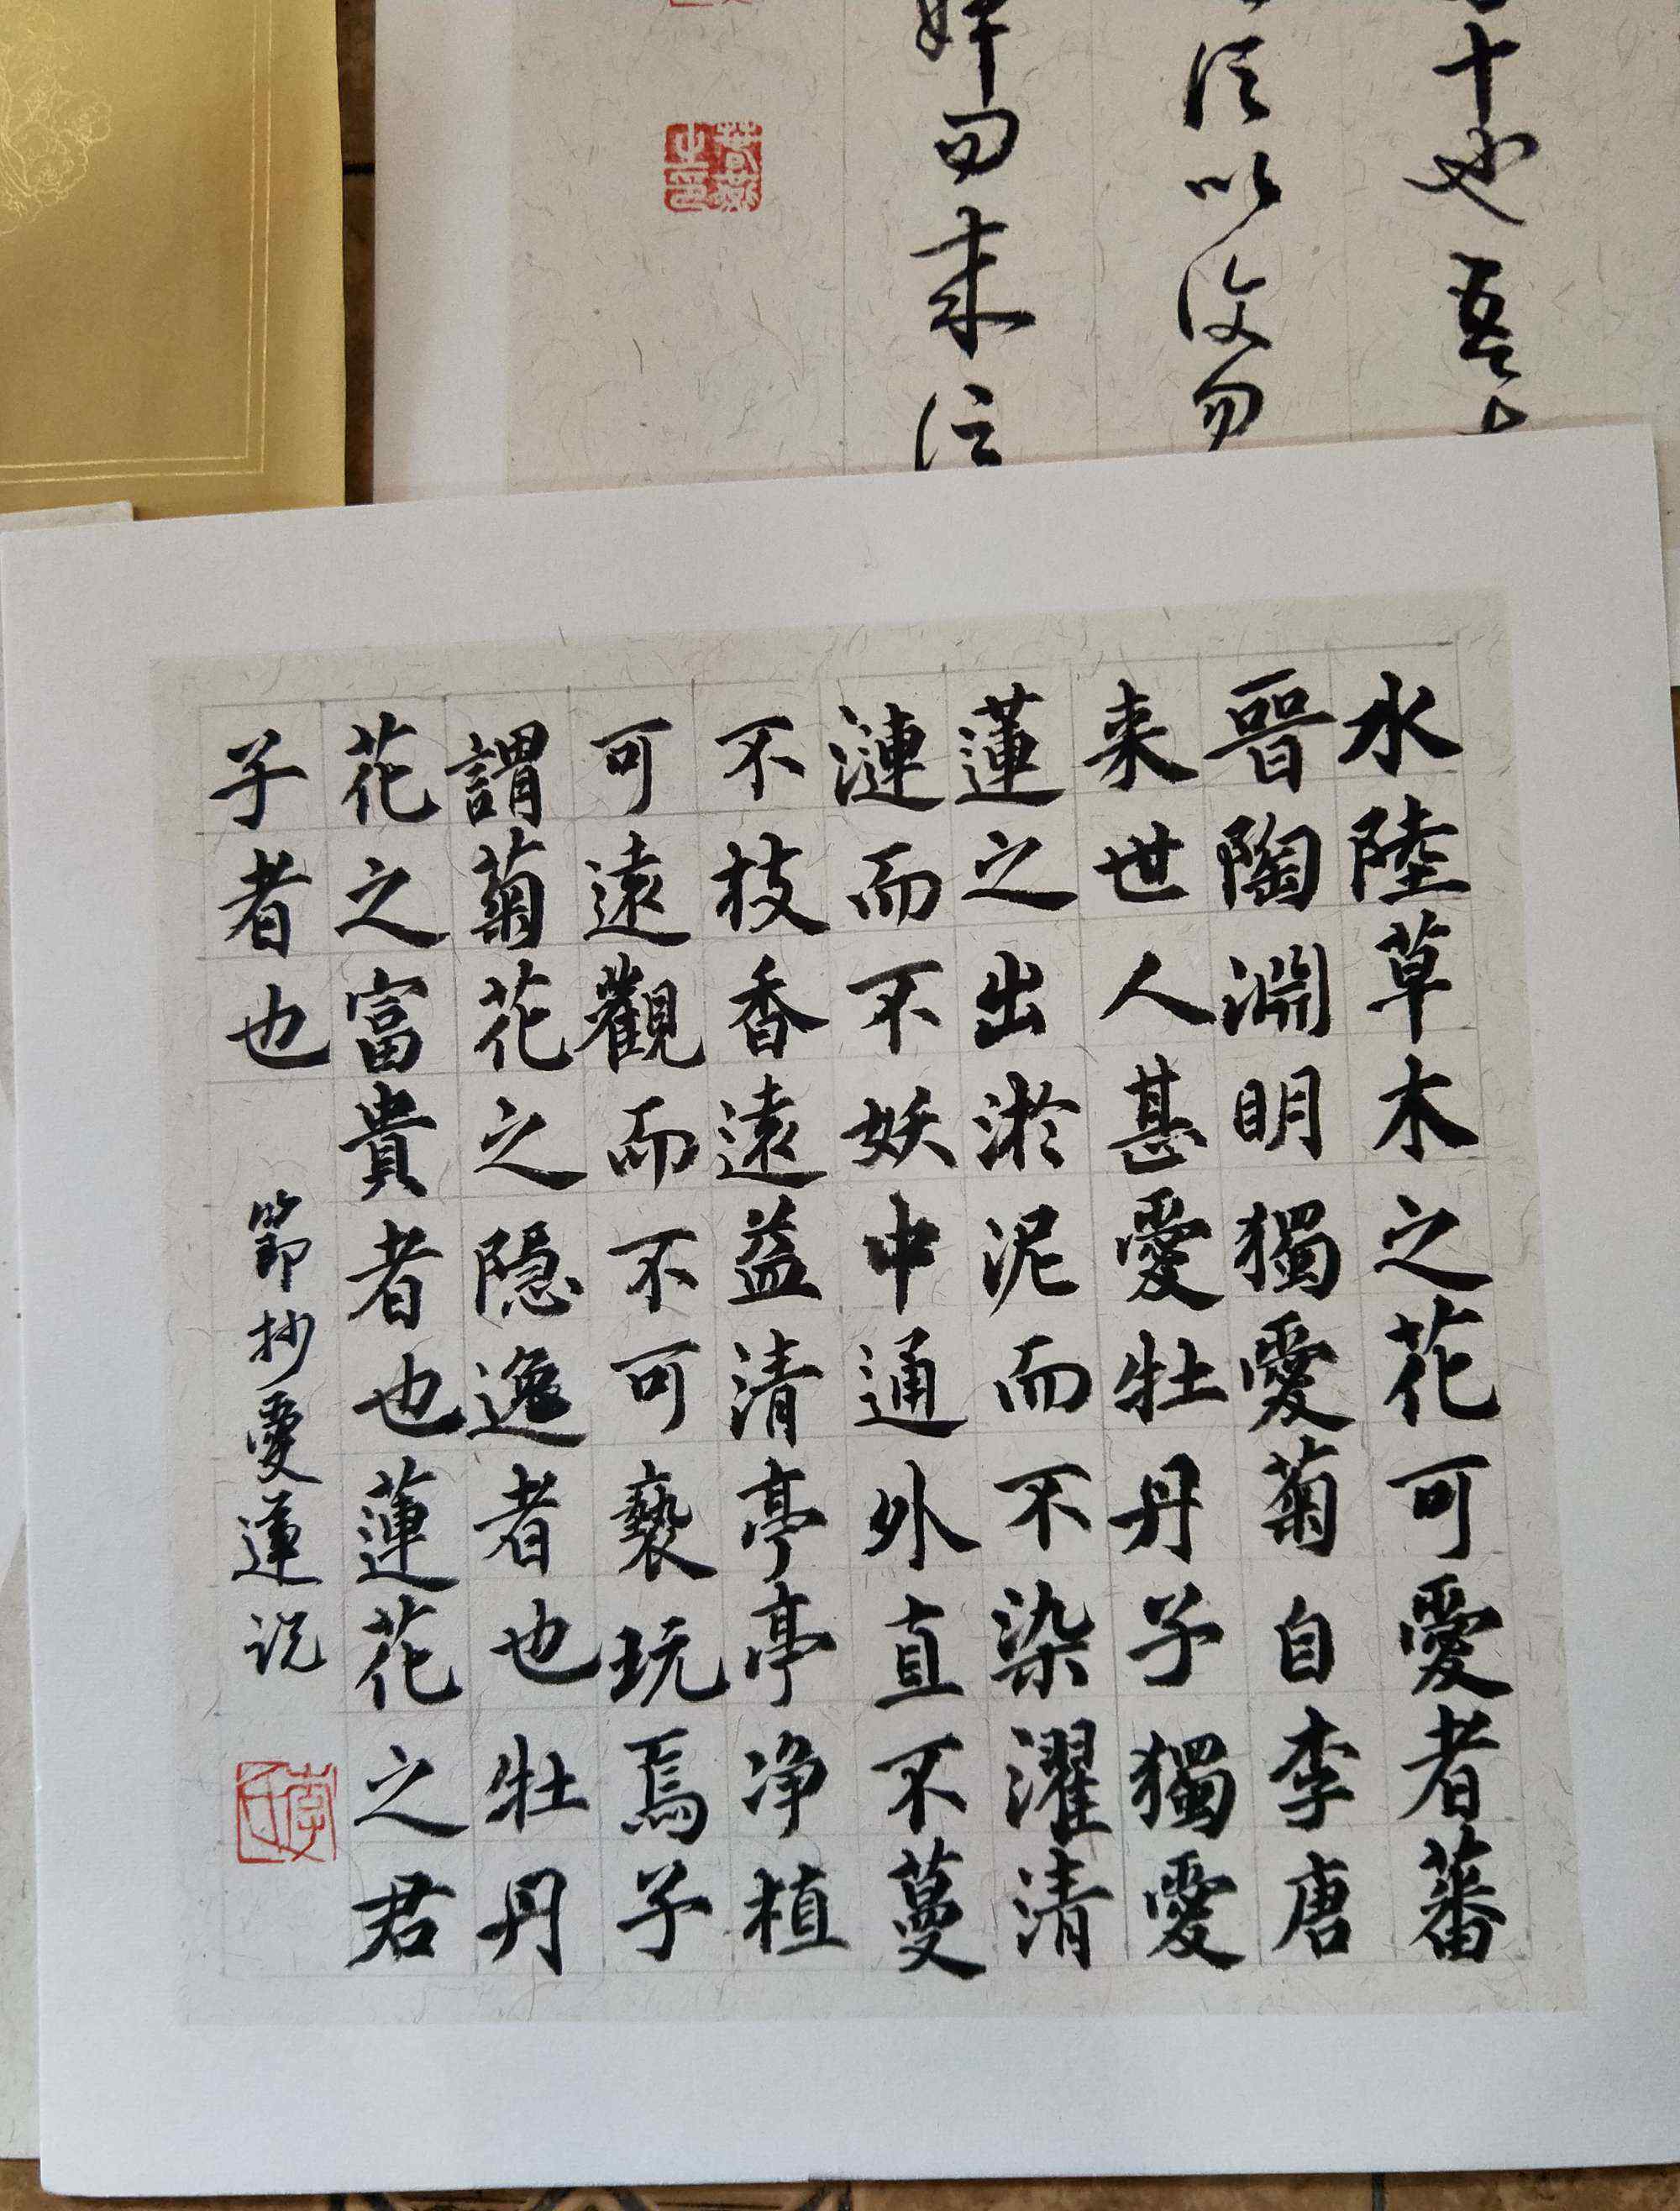 十也吾
以後勿
曰未
水陸草木之花可愛者蕃
晉陶淵明獨愛菊自李唐
来世人甚愛牡丹予獨愛
蓮之出淤泥而不染濯清
漣而不妖中通外直不蔓
不枝香遠益清亭亭净植
可遠觀而不可褻玩焉予
謂菊花之隱逸者也牡丹
花之富貴者也蓮花之君
子者也
節抄愛蓮说